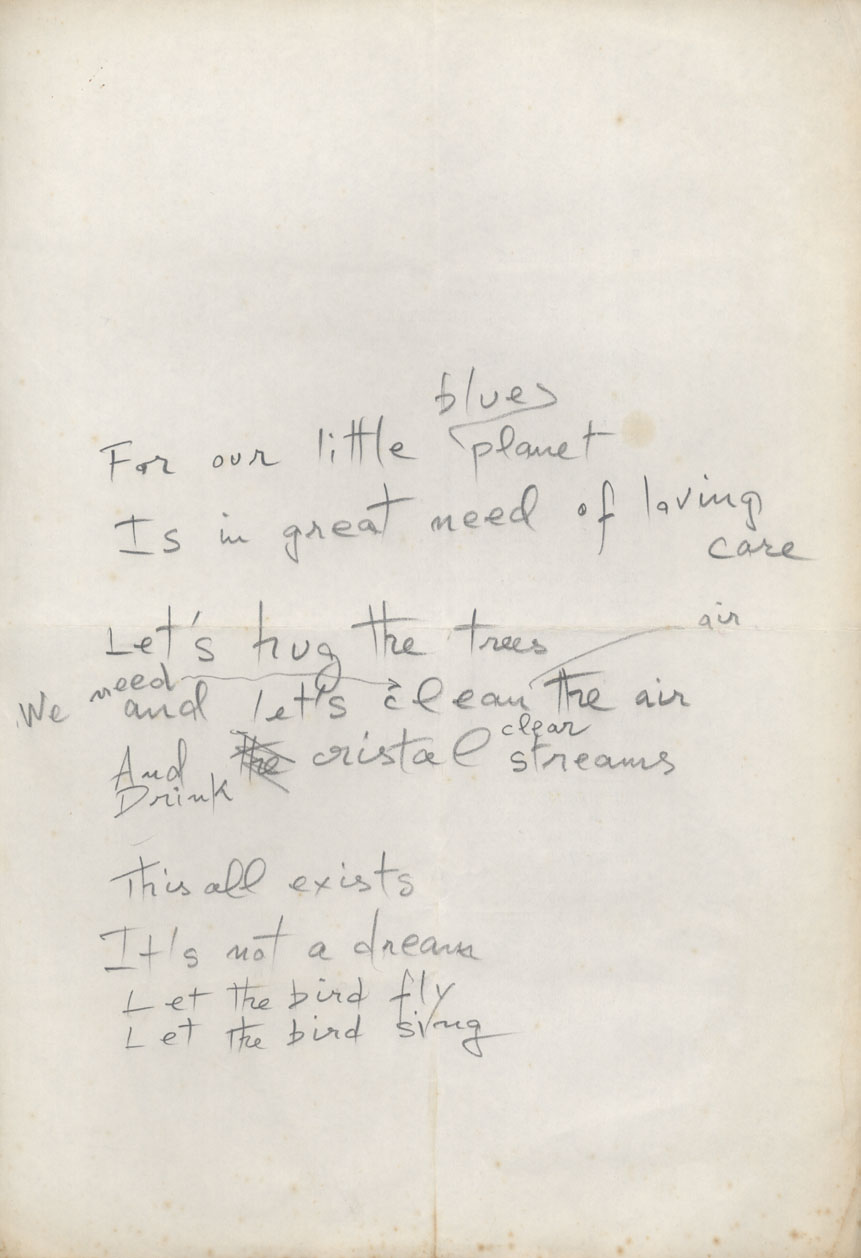 blues
For our little planet
Is in great need of loving
care
Let's hug the trees
air
We need and let's clean the air
clear
And the cristal streams
Drink
This all exists
It's not a dream
Let the bird fly
Let the bird sing